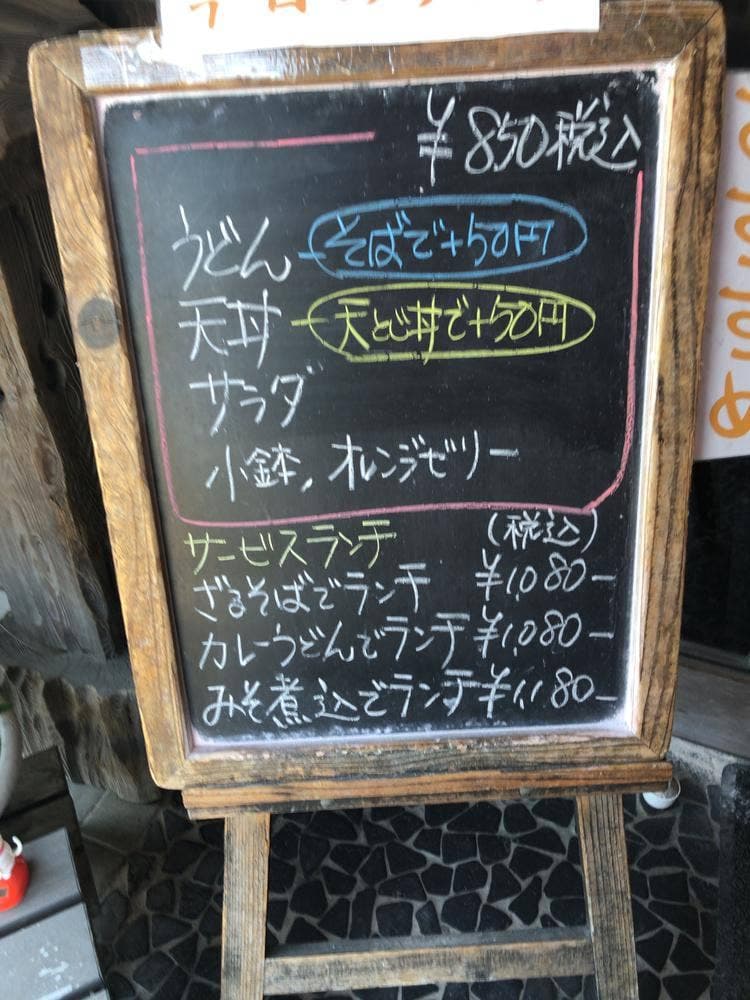 ¥850税込
うどん-そばで+50円
天丼-天とじ丼で+50円
サラダ
小鉢,オレンジゼリー
サービスランチ (税込)
ざるそばでランチ ¥1,080-
カレーうどんでランチ ¥1,080-
みそ煮込でランチ ¥1,180-